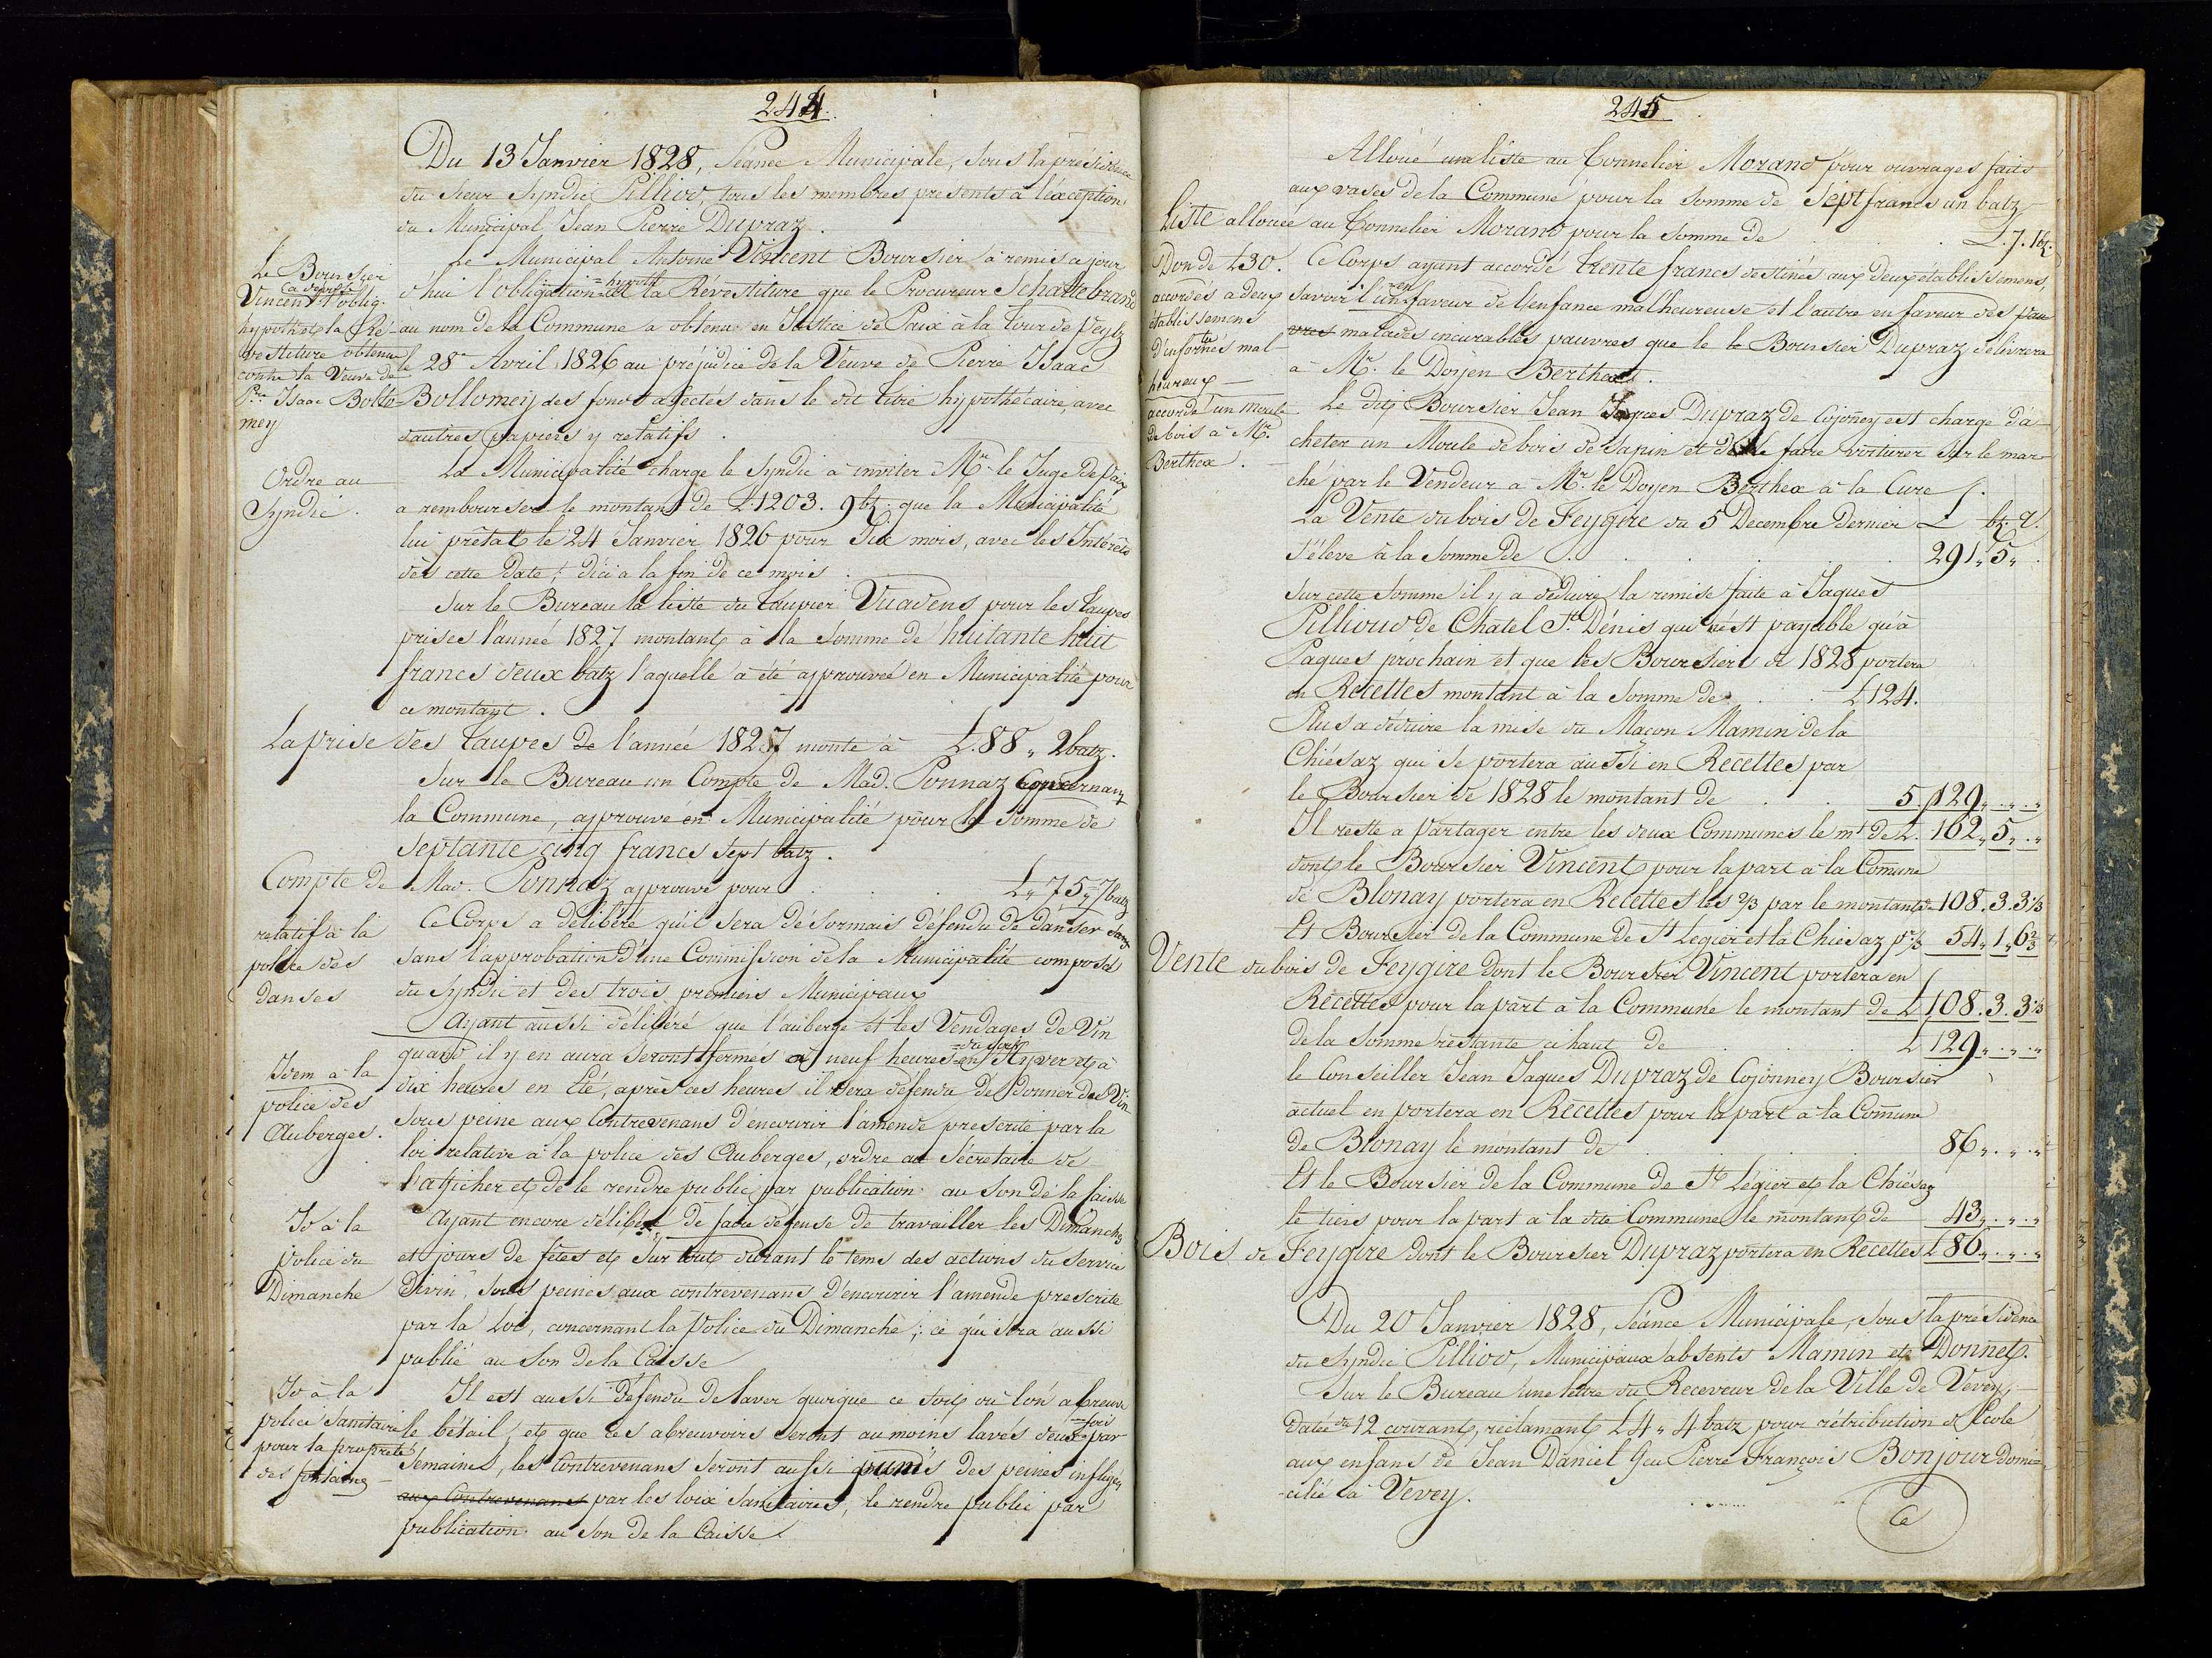 244.
Du 13 Janvier 1828, Séance Municipale, sous la présidence
du Sieur Syndic Pilliod, tous les membres presents à l'éxception
du Municipal Jean Pierre Dupraz.
Le Municipal Antoine Vincent Boursier à remis ce jour
Le Boursier
Vincent
l'oblig.
hypoth et la Ré-
vestiture obtenue
contre la Veuve de
Pre Isaac Bollo-
mey
d'hui l'obligation = hypoth et la Révestiture que le Procureur Schattebrand
au nom de la Commune a obtenue en Justice de Paix à la Tour de Peylz
le 28e Avril 1826 au préjudice de la Veuve de Pierre Isaac
Bollomey des fonds afectés dans le dit titre hypothécaire, avec
d'autres papiers y relatifs.
Ordre au
Syndic.
La Municipalité charge le Syndic à inviter Mr. le Juge de Paix
a rembourser le montant de L.1203. 9 bz. que la Municipalité
lui prêtat le 24 Janvier 1826 pour Six mois, avec les Intérêts
dès cette date; d'ici a la fin de ce mois.
Sur le Bureau la liste du Taupier Vuadens pour les Taupes
prises l'année 1827 montant à la somme de huitante huit
francs deux batz l'aquelle a été approuvée en Municipalité pour
ce montant.
La prise des Taupes de l'année 1827 monte à L.88 „ 2 batz.
Sur le Bureau un Compte de Mad. Ponnaz Concernant
la Commune, approuvé en Municipalité pour la Somme de
Septante cinq francs Sept batz.
Compte de Mad. Ponnaz approuvé pour . . . L„ 75„ 7 batz
relatif à la
police des
danses
Ce Corps a délibéré qu'il sera désormais défendu de danser sans
sans l'approbation d'une Commission de la Municipalité composé
du Syndic et des trois premiers Municipaux
Idem à la
police des
Auberges.
Ayant aussi délibéré que l'auberge et les Vendages de Vin
quand il y en aura seront fermés à neuf heures = du soir en Hyver et à
dix heures en Eté, après ces heures il sera défendu de donner du Vin
sous peine aux Contrevenans d'encourir l'amende prescrite par la
loi relative à la police des Auberges, ordre au Sécretaire de
l'afficher et de le rendre public par publication au Son de la Caisse
Id à la
police du
Dimanche
Ayant encore délibéré de faire défense de travailler les Dimanches
et jours de fêtes et sur tout durant le tems des actions du Service
Divin, sous peines aux contrevenans d'encourir l'amende prescrite
par la Loi, concernant la Police du Dimanche; ce qui sera aussi
publié au Son de la Caisse
Id à la
police Sanitaire
pour la propreté
des fontaines
Il est aussi défendu de laver quoique ce soit ou l'on abreuve
le bétail; et que ces abreuvoirs seront au moins lavés deux = fois par
Semaines, les Contrevenans seront aussi punis des peines infligées
aux Contrevenans par les loix Sanitaires, le rendre public par
publication au Son de la Caisse
245
Alloué une liste au Tonnelier Morand pour ouvrages faits
aux vases de la Commune pour la somme de Sept francs un batz
Liste allouée au Tonnelier Morand pour la somme de . . L.7. 1 bz.
Don de L30.
accordés a deux
établissemens
d'infortunés mal-
heureux —
Ce Corps ayant accordé trente francs destinés aux deux établissemens,
savoir l'un en faveur de l'enfance malheureuse et l'autre en faveur des pau
vres malades incurables pauvres que le le Boursier Dupraz délivrera
a Mr. le Doyen Berthex.
accordé un Moule
de bois à Mr.
Berthex.
Le dit Boursier Jean Jaques Dupraz de Cojonney est charge d'a-
cheter un Moule de bois de sapin et de le faire voiturer sur le mar-
ché par le Vendeur a Mr. le Doyen Berthex à la Cure.
La Vente du bois de Feygire du 5 Decembre dernier L bz. r.
s'éleve à la somme de . . . 291„ 5„ .
Sur cette somme il y a déduire la remise faite à Jaques
Pillioud de Chatel St. Dénis qui n'ést payable qu'à
Paques prochain et que les Boursiers de 1828 portera
en Recettes montant à la somme de . . L124.
Plus a déduire la mise du Maçon Mamin de la
Chiésaz qui se portera aussi en Recettes par
le Boursier de 1828 le montant de . . 5. 129„ . „ . „
Il reste a partager entre les deux Communes le mt de L. 162„ 5„ . „
dont le Boursier Vincent pour la part à la Comune
de Blonay portera en Recettes les 2/3 par le montant de 108. 3. 3 1/3
Et Boursier de la Commune de St Legier et la Chiesaz pr 1/3 54„ 1„ 6 2/3
Vente du bois de Feygire dont le Boursier Vincent portera en
Recettes pour la part à la Commune le montant de L 108. 3. 3 1/3
de la somme restante ci haut de . . . L 129„ . „ . „
le Conseiller Jean Jaques Dupraz de Cojonney Boursier
actuel en portera en Recettes pour la part à la Comune
de Blonay le montant de . . . 86„ . „ . „
Et le Boursier de la Commune de St Légier et la Chiésaz
le tiers pour la part à la dite Commune le montant de 43„ . „ . „
Bois de Feygire dont le Boursier Dupraz portera en Recettes L 86„ . „ . „
Du 20 Janvier 1828, Séance Municipale, sous la présidence
du Syndic Pilliod, Municipaux absents Mamin et Donnet.
Sur le Bureau une lettre du Receveur de la Ville de Vevey,
datée du 12 courant, réclamant L4 „ 4 batz pour rétribution d'Ecole
aux enfans de Jean Daniel feu Pierre François Bonjour domi-
cilié à Vevey.
Ce